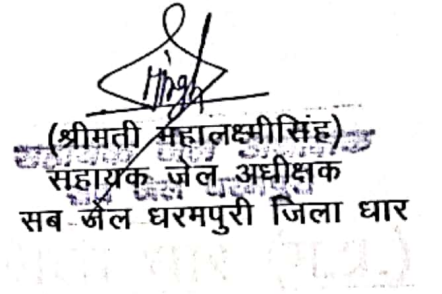 (श्रीमती महालक्ष्मीसिंह)
सहायक जेल अधीक्षक
सब जेल धरमपुरी जिला धार